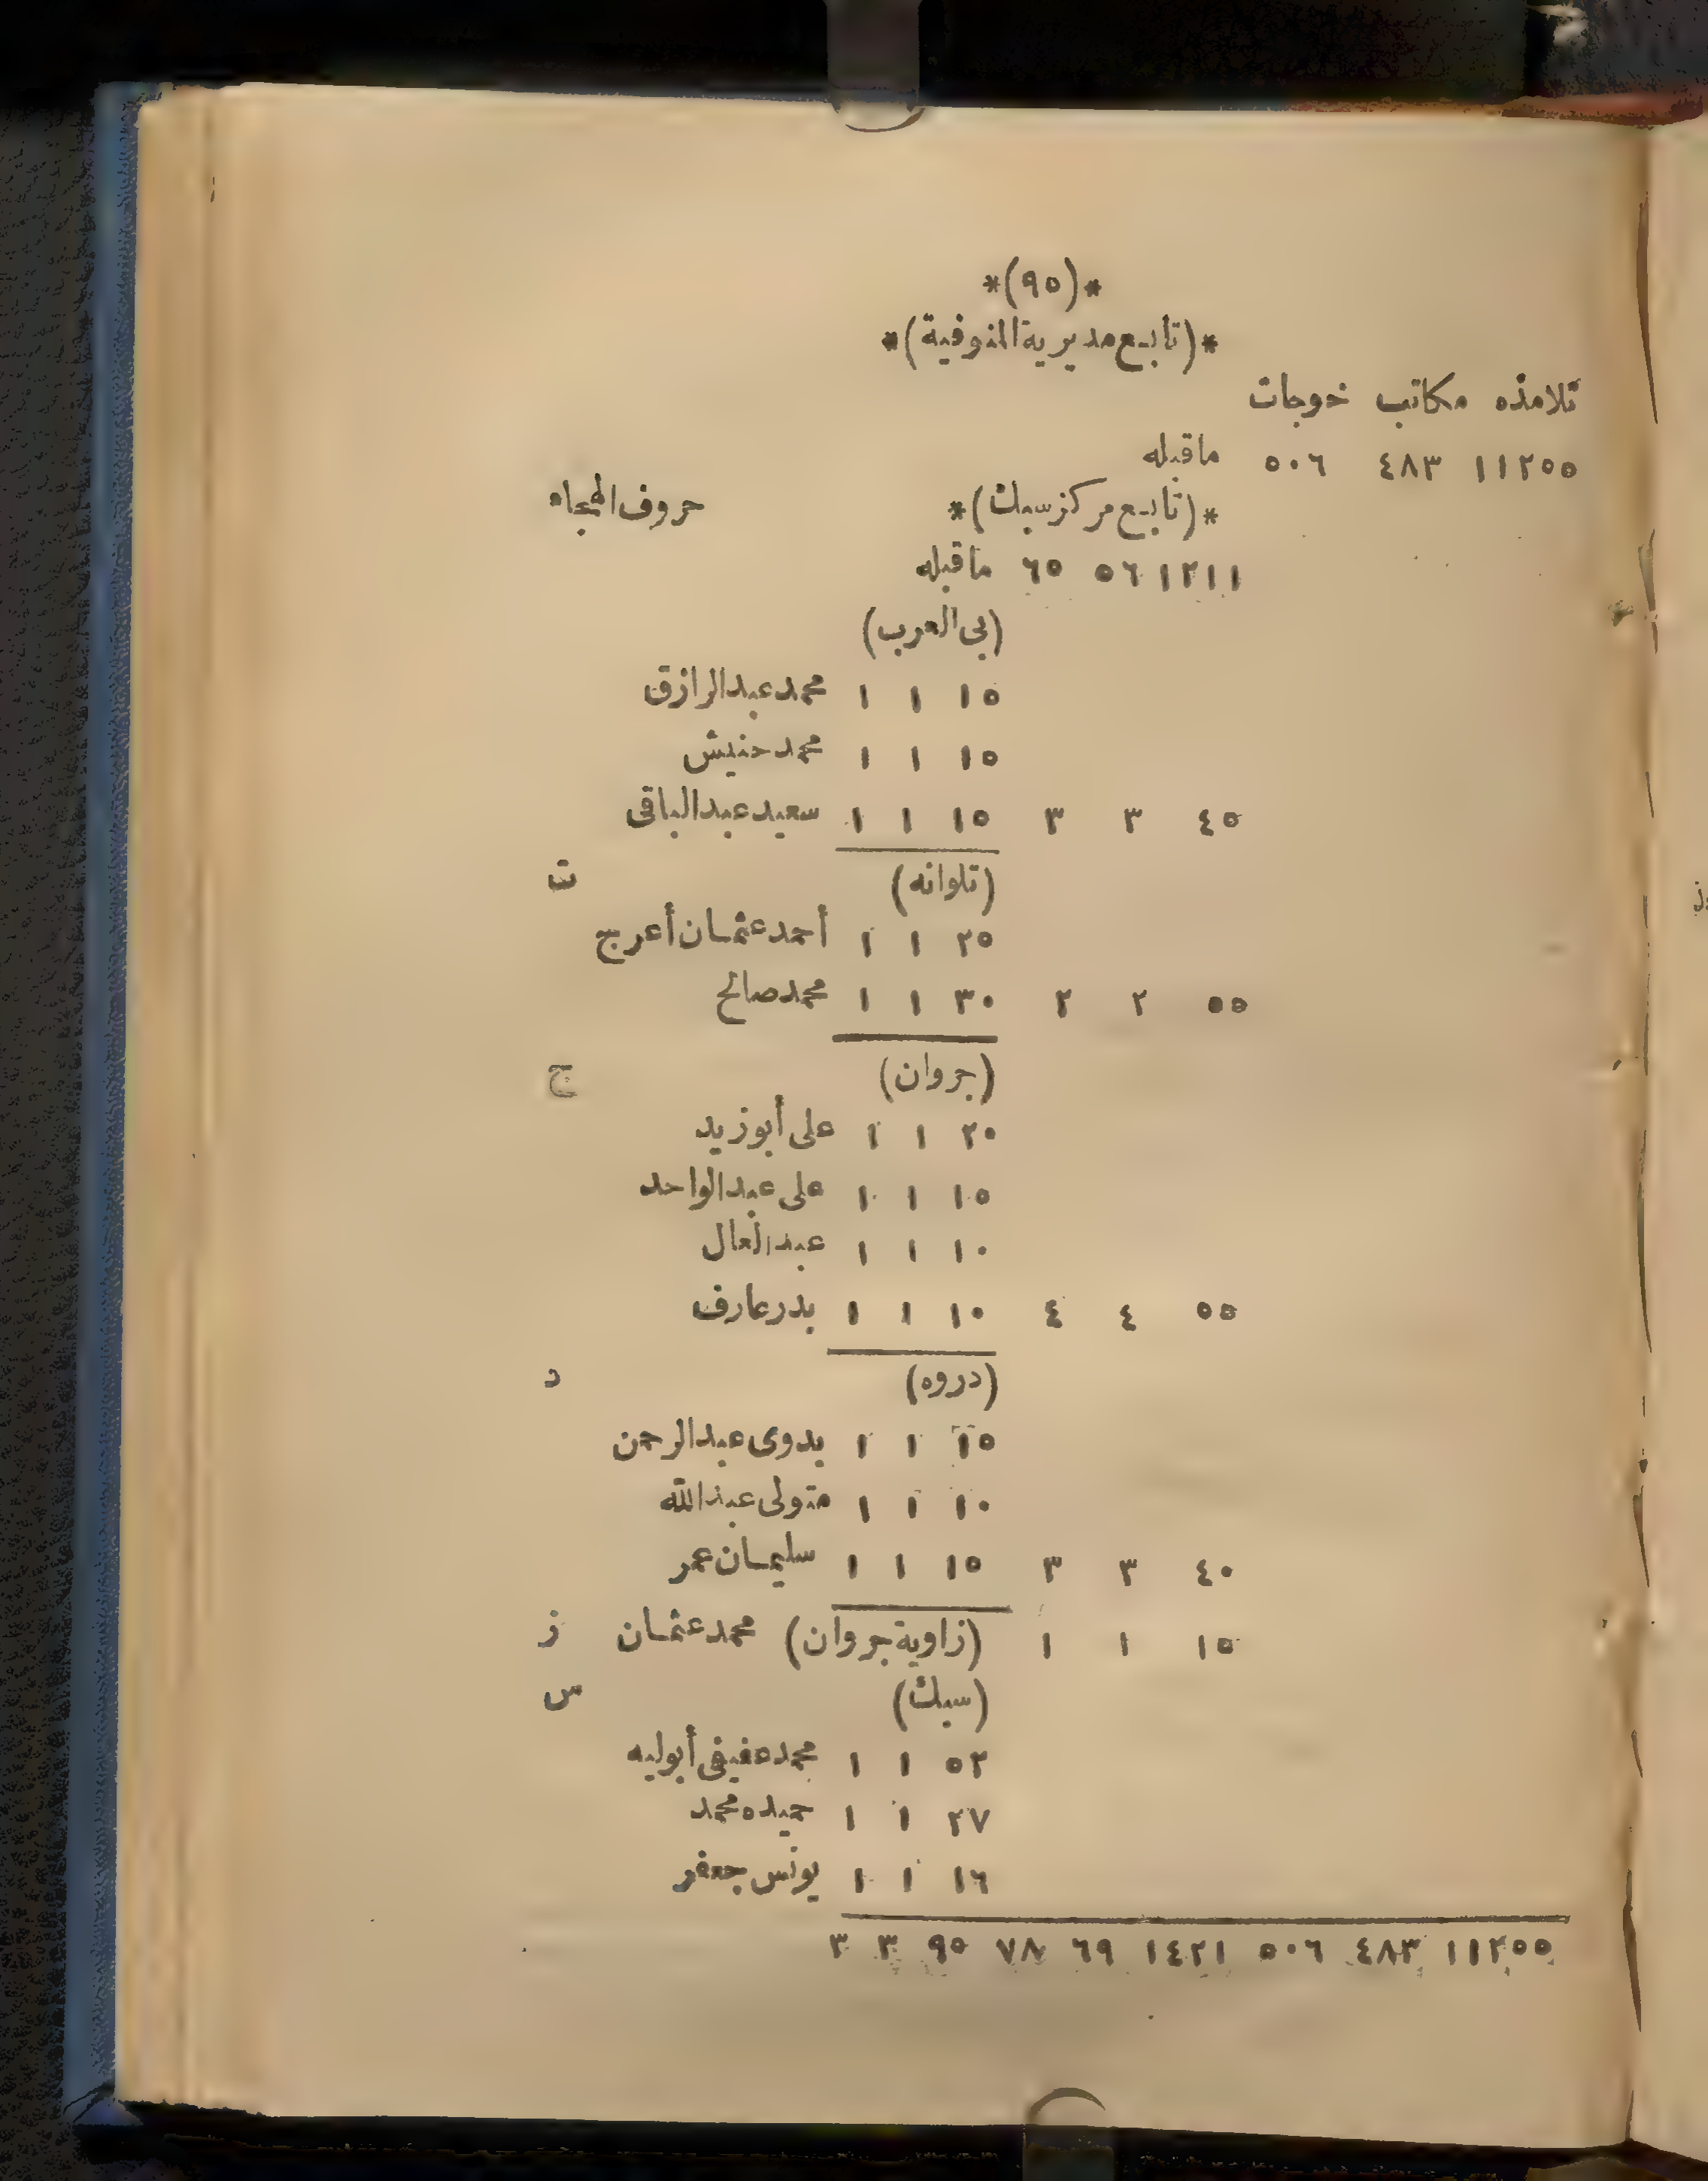 *(٩٥)*
*(تابع مديرية المنوفية)*
تلامذه مكاتب خوجات
١١٢٥٥ ٤٨٣ ٥٠٦ ماقبله
*(تابع مركز سبك)* حروف الهجاء
١٢١١ ٥٦ ٦٥ ماقبله
(بى العرب)
١٥ ١ ١ محمد عبد الرازق
١٥ ١ ١ محمد حنيش
٤٥ ٣ ٣ ١٥ ١ ١ سعيد عبد الباقى
(تلوانه) ت
٢٥ ١ ١ أحمد عثمان أعرج
٥٥ ٢ ٢ ٣٠ ١ ١ محمد صالح
(جروان) ج
٢٠ ١ ١ على أبوزيد
١٥ ١ ١ على عبد الواحد
١٠ ١ ١ عبد العال
٥٥ ٤ ٤ ١٠ ١ ١ بدر عارف
(دروه) د
١٥ ١ ١ بدوى عبد الرحمن
١٠ ١ ١ متولى عبد الله
٤٠ ٣ ٣ ١٥ ١ ١ سليمان عمر
١٥ ١ ١ (زاوية جروان) محمد عثمان ز
(سبك) س
٥٢ ١ ١ محمد عفيفى أبوليه
٢٧ ١ ١ حميده محمد
١٦ ١ ١ يونس جعفر
١١٢٥٥ ٤٨٣ ٥٠٦ ١٤٢١ ٦٩ ٧٨ ٩٥ ٣ ٣